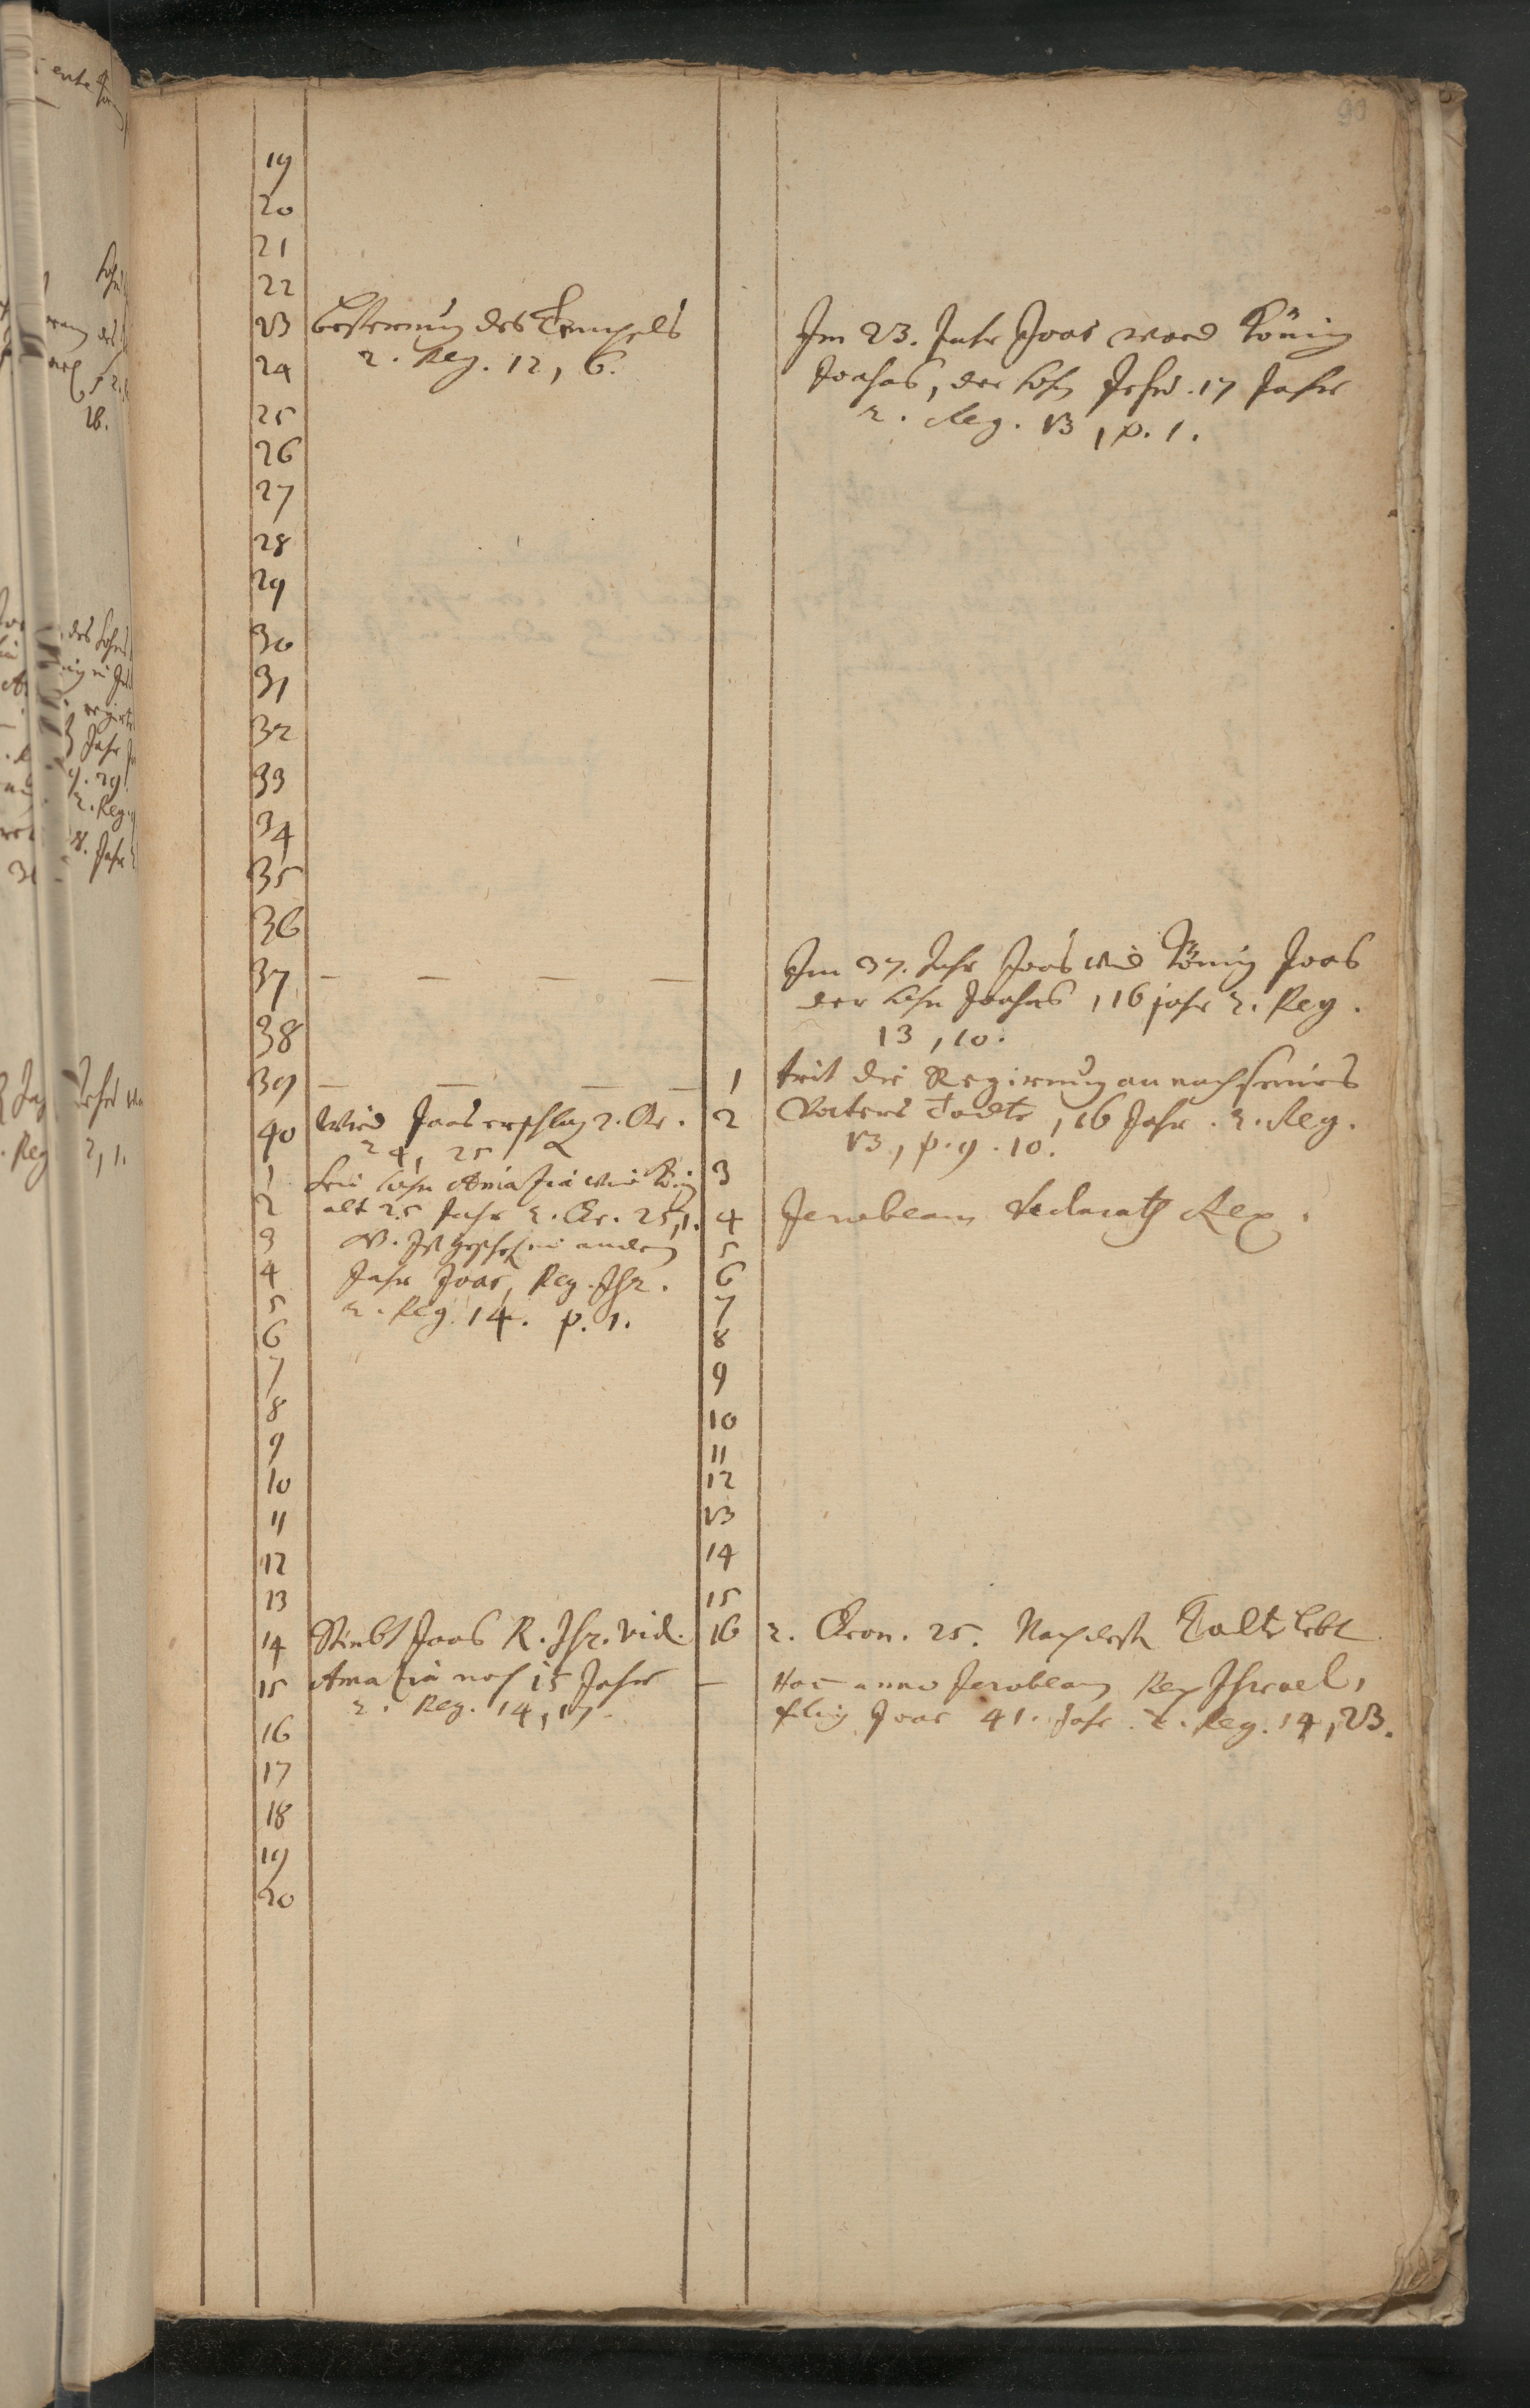 93
19
20
21
22
23 Besserung des Tempels
2. Reg. 12, 6.
Im 23. Jahr Joas ward König
Joahas, der Sohn Jehu. 17 Jahr
2. Reg. 13, v. 1.
24
25
26
27
28
29
30
31
32
33
34
35
36
37 — — — —
Im 37. Jahr Joas wird König Joas
der Sohn Joahas, 16 jahr 2. Reg.
13, 10.
38
39 — — — — 1 trit die Regirung an nach seines
40 Wird Joas erschlag 2. Cr. 2 Vaters Todte, 16 Jahr. 2. Reg.
24, 25
13, v. 9. 10.
1 Sein Sohn Amazia wird König 3
2 alt 25 Jahr 2. Cr. 25, 1. 4 Jerobeam declarat Rex.
3 Ist geschehen im andern 5
4 Jahr Joas, Reg. Isr. 6
5 2. Reg. 14. v. 1. 7
6 8
7 9
8 10
9 11
10 12
11 13
12 14
13 15
14 Stirbt Joas R. Isr. vid. 16 2. Cron. 25. Nach dess Todte lebt
15 Amazia noch 15 Jahr — Hoc anno Jerobeam Rex Israel,
2. Reg. 14, 17.
filius Joas 41. Jahr. 2. Reg. 14, 23.
16
17
18
19
20